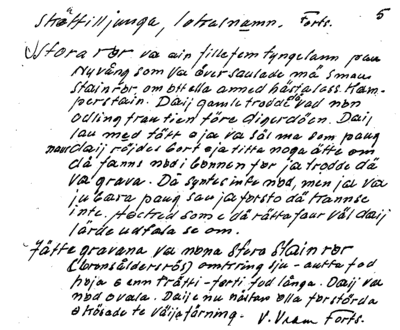 Skåttilljunga, lokalnamn. Forts. 5
Stora ror va ain fillefem tyngelann pau
Nyvång som va över saulade mä smau
stainrör, om ott ella anned hästalass Kam-
perstain. Daij gamle trodde vad non
odling frau tien före digerdöen. Daij
lau med tått o ja va säl ma som paug
naur daij röjdes bort o ja titte noga ätte om
då fanns nod i bonnen for ja trodde dä
va grava. Då syntes inte nod, men ja va
ju bara paug sau ja forsto dä kannse
inte.
lärde udtala se om.
Jätte gravana va nona Stora Stainror
(bronsåldersrös) omkring sju - autta fod
höja o enn trätti - förti fod långa. Daij va
nod ovala. Daij e nu nästan olla forstörda
o kösade te väijaförning. V. Vram Forts.